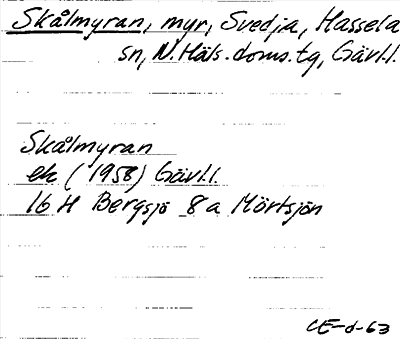 Skålmyran, myr, Svedja, Hassela
sn, N. Häls. doms. tg, Gävl.l.
Skålmyran
ek (1958) Gävl.l.
16 H Bergsjö 8 a Mörtsjön
CE-d-63